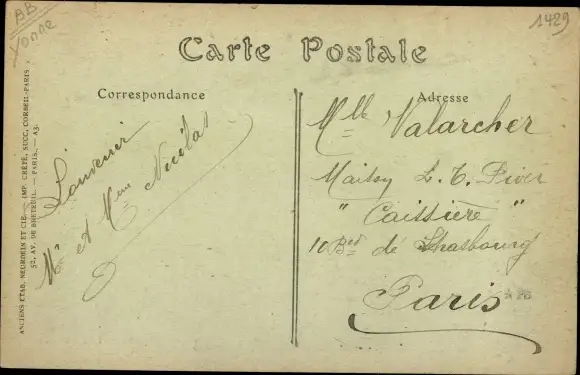 BB
Yonne
1429
Carte Postale
Correspondance
Adresse
Souvenir
Mr et Mme
Mlle Valarcher
L. T. Piver
" Caissière "
10 Bed de Strasbourg
Paris
ANCIENS ETAB. NEURDEIN ET CIE. — IMP. CRÉTÉ, SUCC. CORBEIL-PARIS
52, AV. DE BRETEUIL. — PARIS. — A3.